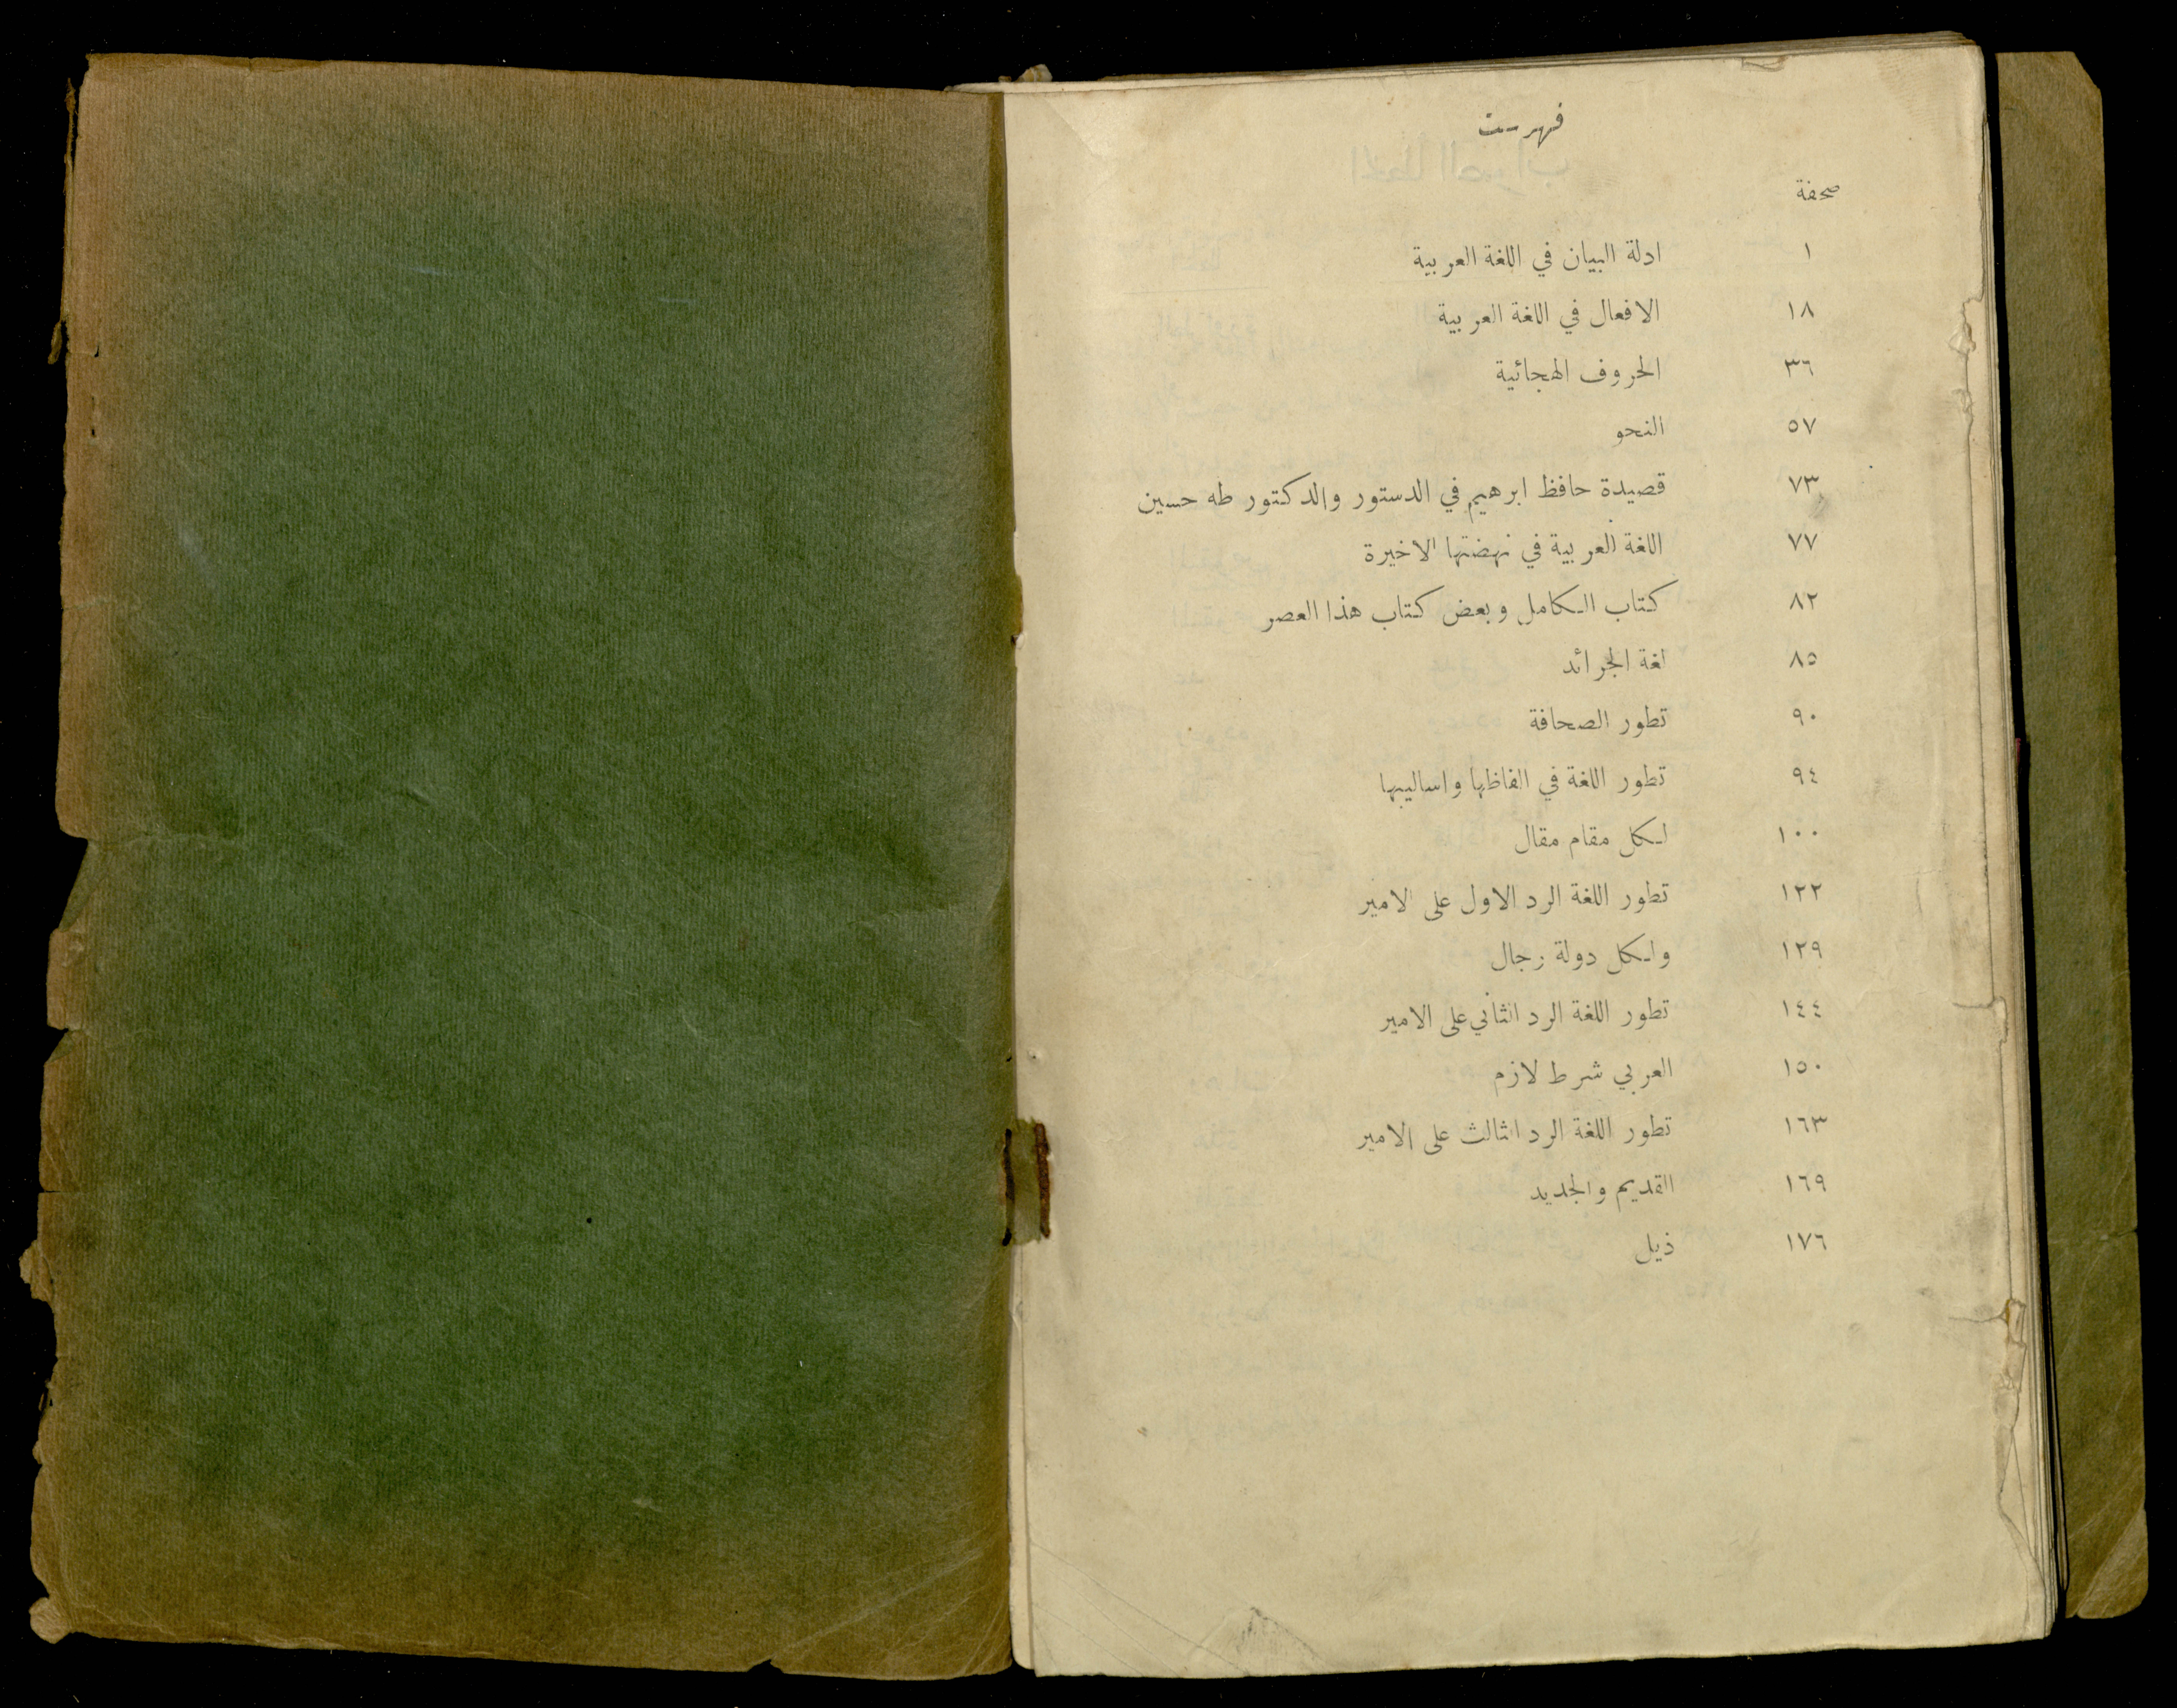 فهرست
صحفة
١ ادلة البيان في اللغة العربية
١٨ الافعال في اللغة العربية
٣٦ الحروف الهجائية
٥٧ النحو
٧٣ قصيدة حافظ ابرهيم في الدستور والدكتور طه حسين
٧٧ اللغة العربية في نهضتها الاخيرة
٨٢ كتاب الكامل وبعض كتاب هذا العصر
٨٥ لغة الجرائد
٩٠ تطور الصحافة
٩٤ تطور اللغة في الفاظها واساليبها
١٠٠ لكل مقام مقال
١٢٢ تطور اللغة الرد الاول على الامير
١٢٩ ولكل دولة رجال
١٤٤ تطور اللغة الرد الثاني على الامير
١٥٠ العربي شرط لازم
١٦٣ تطور اللغة الرد الثالث على الامير
١٦٩ القديم والجديد
١٧٦ ذيل